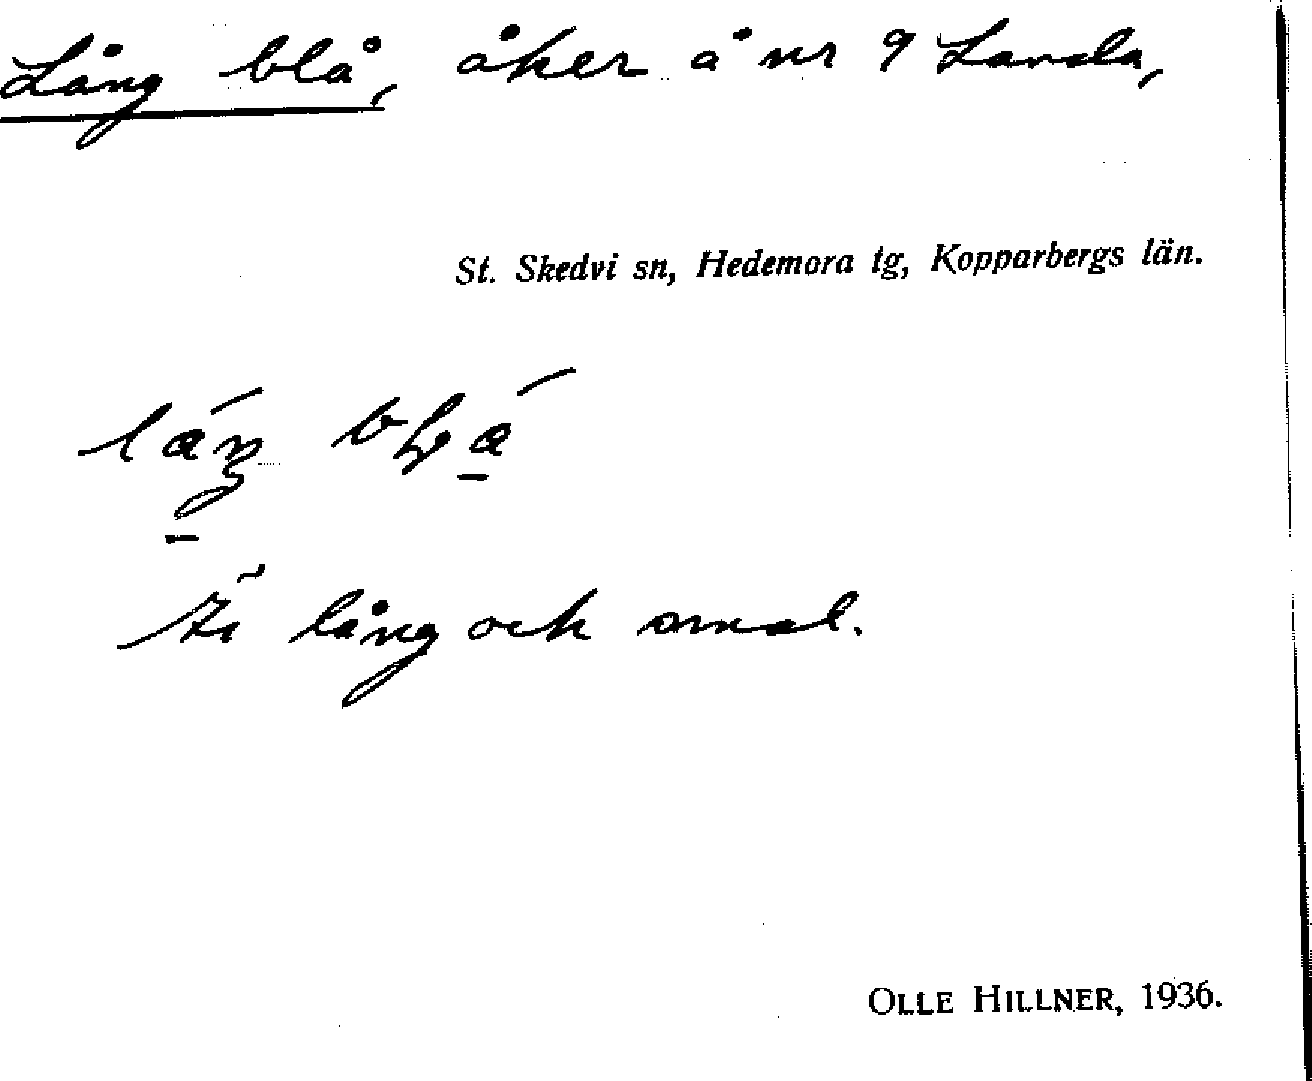 Lång blå, åker å nr 9 Landa,
St. Skedvi sn, Hedemora tg, Kopparbergs län.
Är lång och smal.
OLLE HILLNER, 1936.